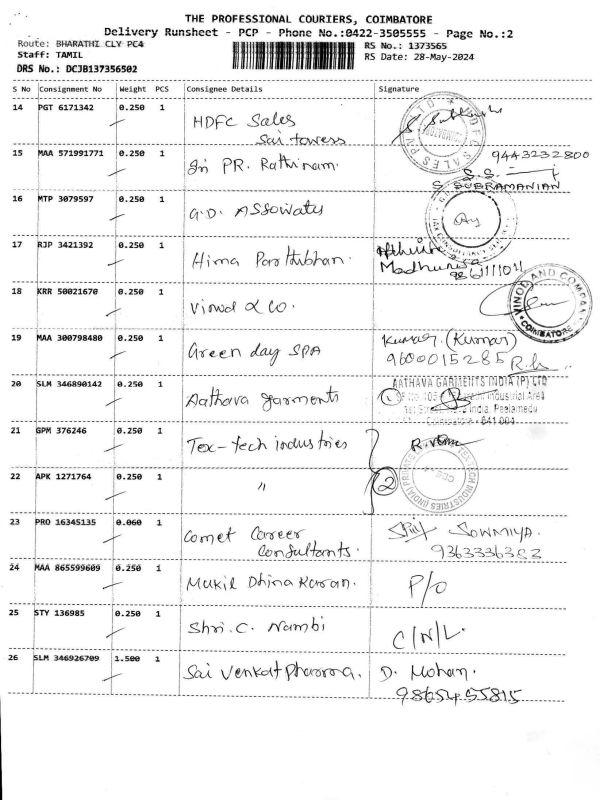 THE PROFESSIONAL COURIERS, COIMBATORE
Delivery Runsheet - PCP - Phone No.:0422-3505555 - Page No.:2
Route: BHARATHI CLY PC4
RS No.: 1373565
Staff: TAMIL
RS Date: 28-May-2024
DRS No.: DCJB137356502
S No Consignment No Weight PCS Consignee Details Signature
14 PGT 6171342 0.250 1 HDFC Sales
Sai towers
15 MAA 571991771 0.250 1 Sri PR. Rathinam. 9443232800
S. SUBRAMANIAN
16 MTP 3079597 0.250 1 G.D. ASSOWATES
17 RJP 3421392 0.250 1 Hima Parthibhan.
18 KRR 50021670 0.250 1 Vinod & Co. VINOD AND COMPANY
COIMBATORE
19 MAA 300798480 0.250 1 Green day SPA Kumar. (Kumar)
9600015285
20 SLM 346890142 0.250 1 Aathava garments ① AATHAVA GARMENTS INDIA (P) LTD
Industrial Area
India, Peelamedu
Coimbatore - 641 004
21 GPM 376246 0.250 1 Tex-tech industries
22 APK 1271764 0.250 1 " ② TEX-TECH INDUSTRIES (INDIA) PRIVATE
23 PRO 16345135 0.060 1 Comet Career
Consultants. SOWMIYA.
9363336352
24 MAA 865599609 0.250 1 Mukil Dhina Karan. P/O
25 STY 136985 0.250 1 Shri. C. Nambi C/N/L.
26 SLM 346926709 1.500 1 Sai Venkat Pharma. D. Mohan.
9865455815